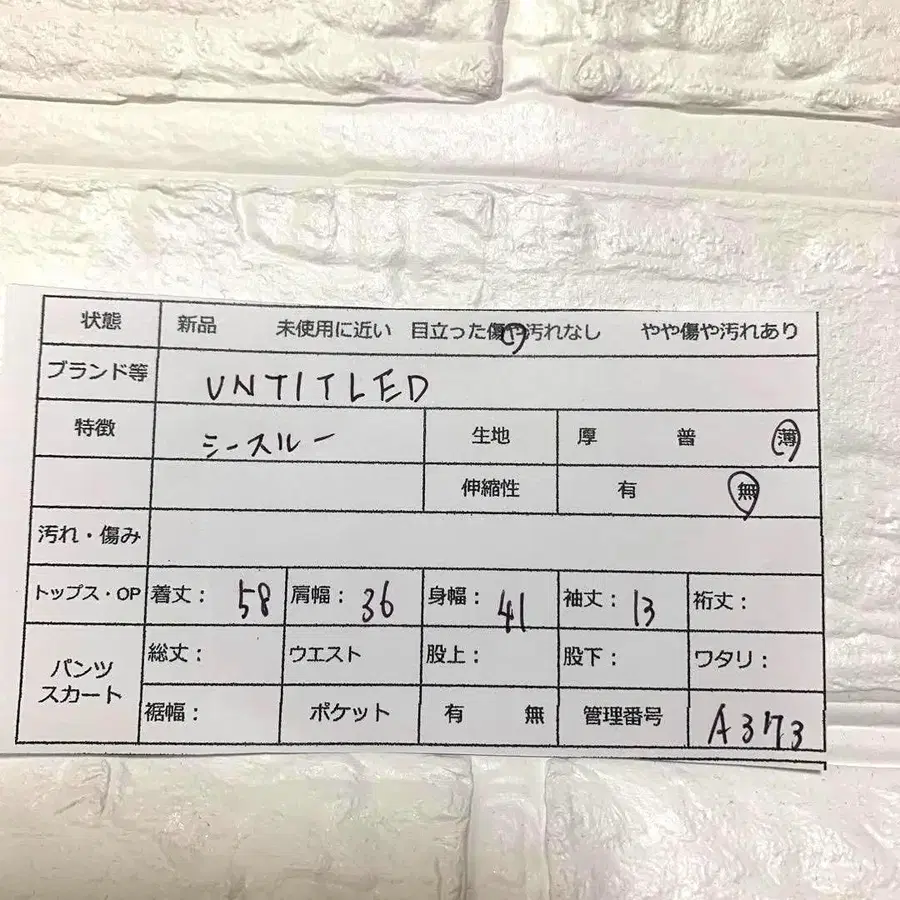 状態 新品 未使用に近い 目立った傷や汚れなし やや傷や汚れあり
ブランド等 UNTITLED
特徴 シースルー 生地 厚 普 薄
伸縮性 有 無
汚れ・傷み
トップス・OP 着丈： 58 肩幅： 36 身幅： 41 袖丈： 13 裄丈：
パンツ
スカート
総丈： ウエスト 股上： 股下： ワタリ：
裾幅： ポケット 有 無 管理番号 A373